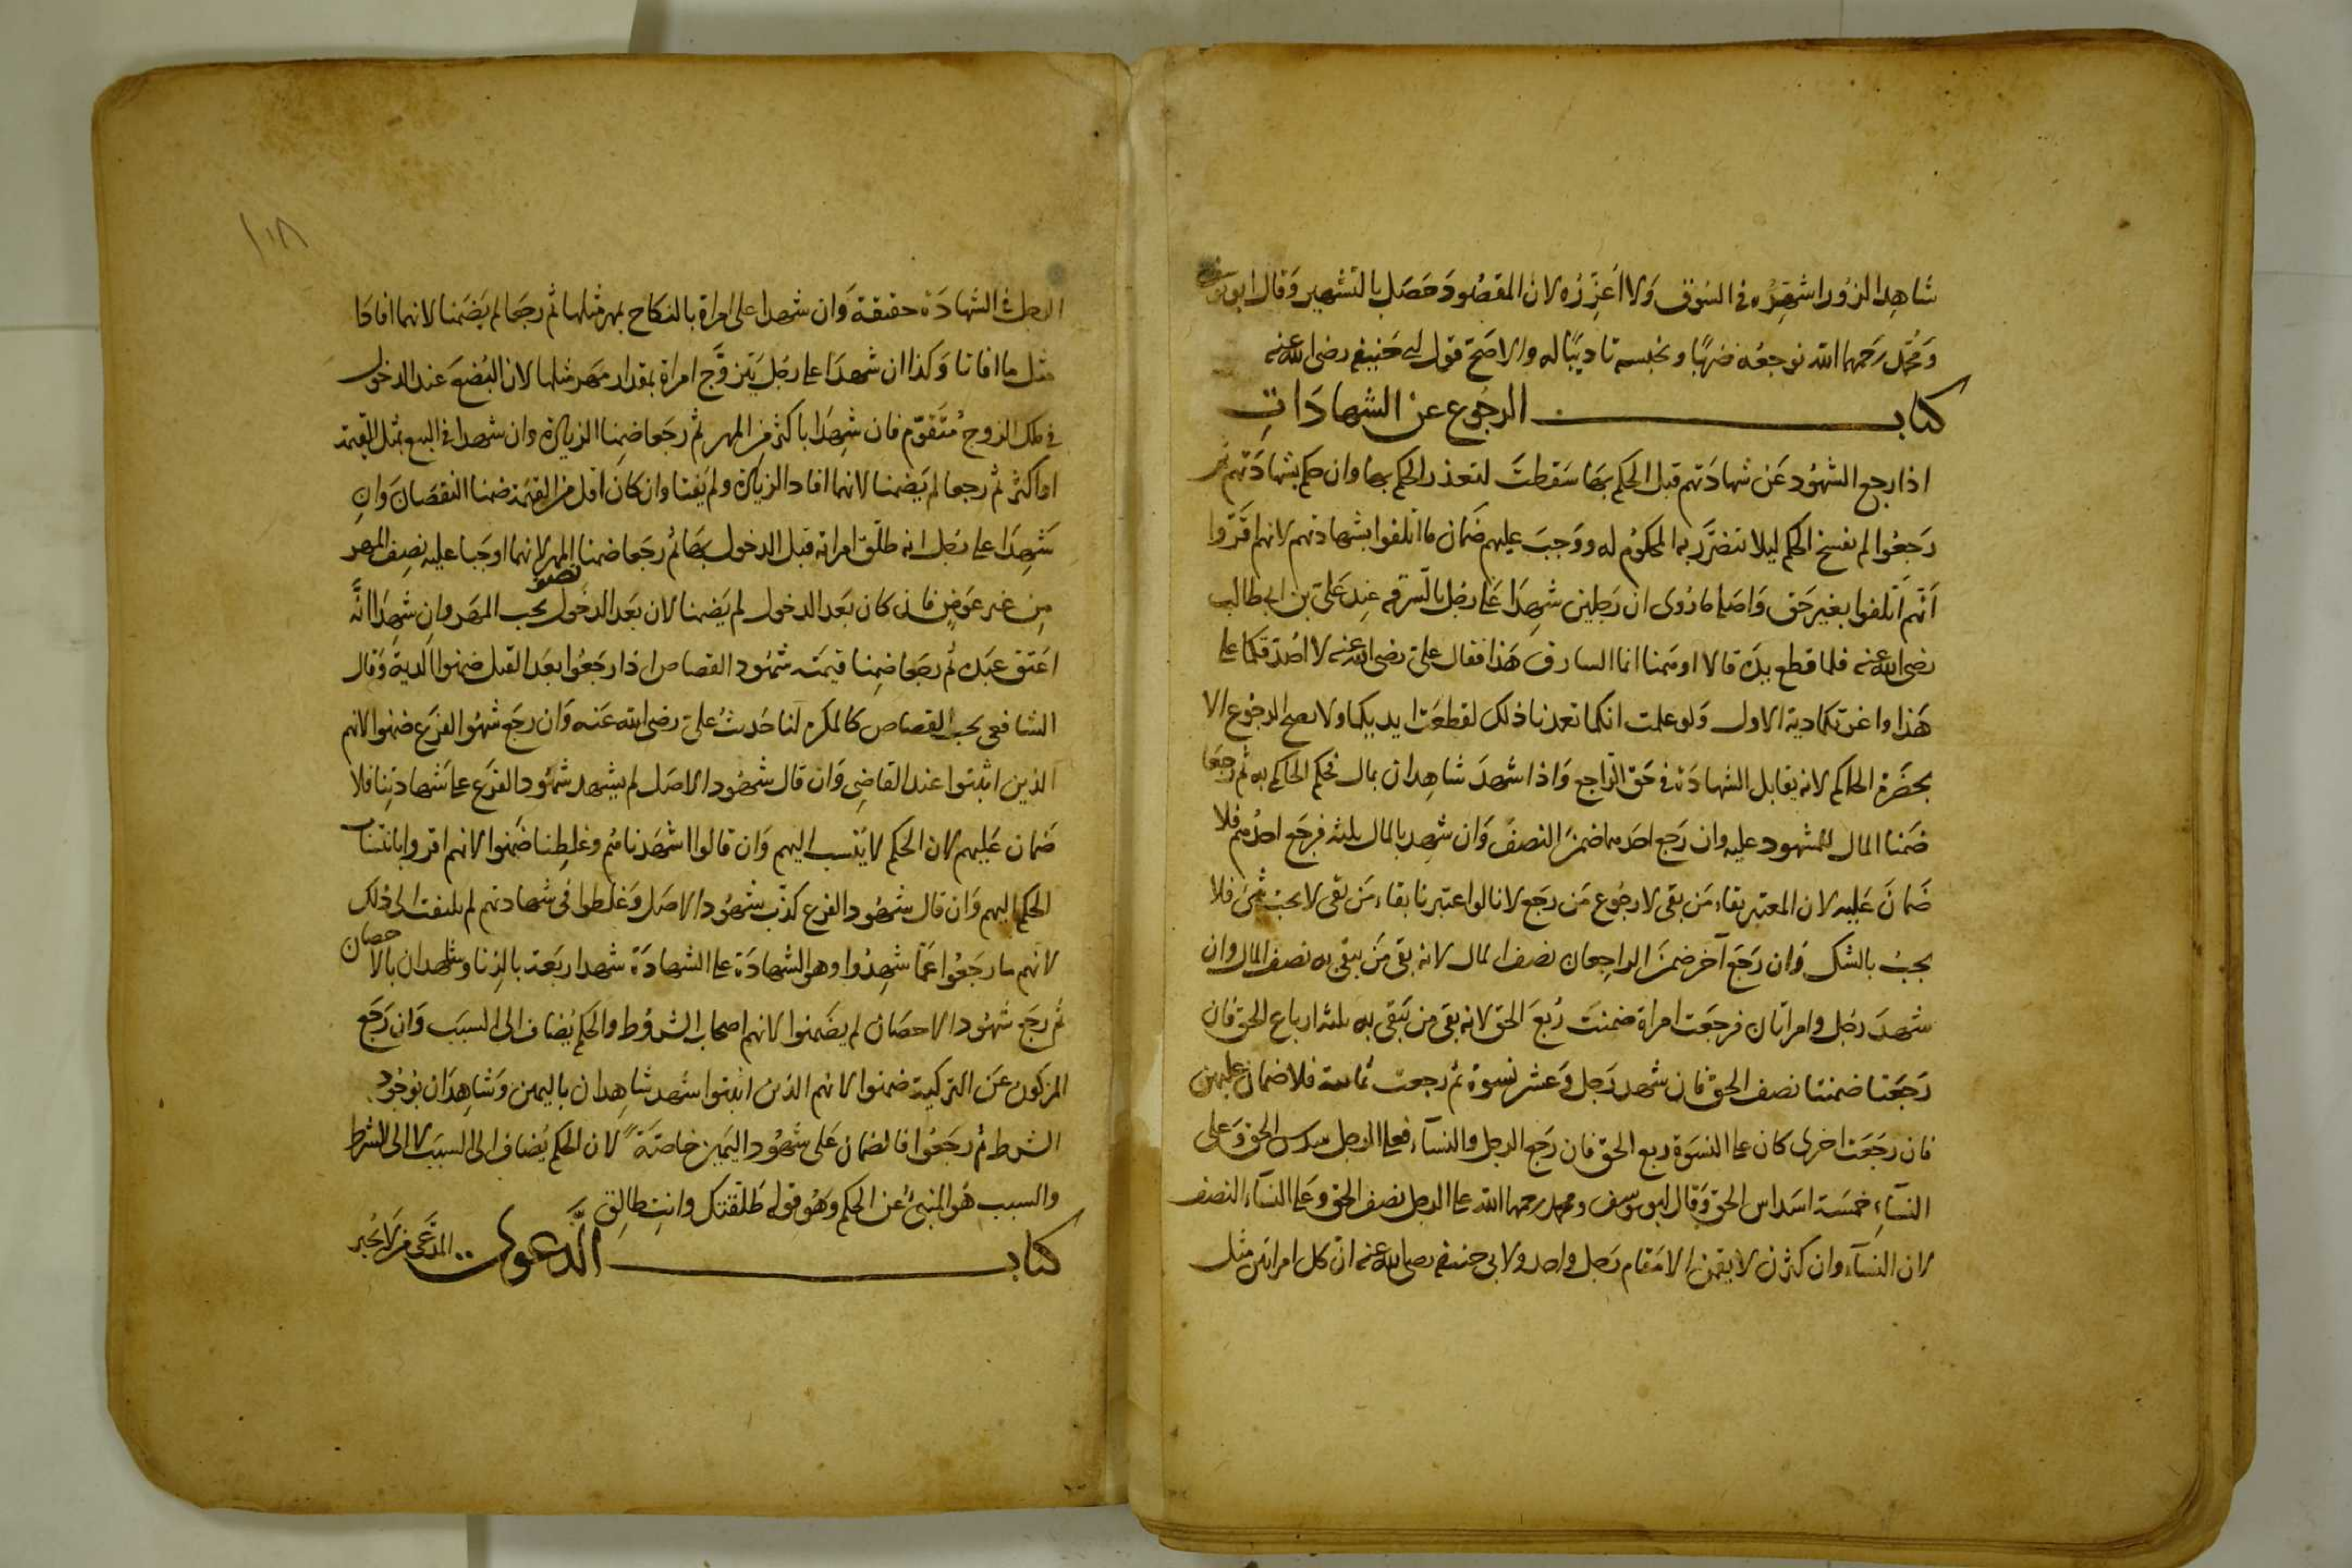 شاهد الزور اشهره في السوق ولا اعزره لان المقصود حصل بالتشهير وقال ابو يوسف
ومحمد رحمهما الله نوجعه ضربا ونحبسه تاديبا له والاصح قول ابي حنيفة رضي الله عنه
كتاب الرجوع عن الشهادات
اذا رجع الشهود عن شهادتهم قبل الحكم بها سقطت لتعذر الحكم بها وان حكم بشهادتهم ثم
رجعوا لم يفسخ الحكم ليلا يتضرر به المحكوم له ووجب عليهم ضمان ما اتلفوا بشهادتهم لانهم اقروا
انهم اتلفوا بغير حق واصله ما روى ان رجلين شهدا على رجل بالسرقة عند علي بن ابي طالب
رضي الله عنه فلما قطع يده قالا اوهمنا انما السارق هذا فقال علي رضي الله عنه لا اصدقكما على
هذا واغرمكما دية الاول ولو علمت انكما تعمدتما ذلك لقطعت ايديكما ولا يصح الرجوع الا
بحضرة الحاكم لانه يقابل الشهادة في حق الراجع واذا شهد شاهدان بمال فحكم الحاكم به ثم رجعا
ضمنا المال للمشهود عليه وان رجع احدهما ضمن النصف وان شهد بالمال ثلثه فرجع احدهم فلا
ضمان عليه لان المعتبر بقاء من بقى لا رجوع من رجع لانا لو اعتبرنا بقاء من بقى لا يجب شيئ فلا
يجب بالشك وان رجع آخر ضمن الراجعان نصف المال لانه بقى من يبقى به نصف المال وان
شهد رجل وامراتان فرجعت امراة ضمنت ربع الحق لانه بقى من يبقى به ثلثه ارباع الحق فان
رجعتا ضمنتا نصف الحق فان شهد رجل وعشر نسوة ثم رجعت ثمانية فلا ضمان عليهن
فان رجعت اخرى كان على النسوة ربع الحق فان رجع الرجل والنساء فعلى الرجل سدس الحق وعلى
النساء خمسة اسداس الحق وقال ابو يوسف ومحمد رحمهما الله على الرجل نصف الحق وعلى النساء النصف
لان النساء وان كثرن لا يقمن الا مقام رجل واحد ولابي حنيفة رضي الله عنه ان كل امراتين مثل
١٠٨
الرجل في الشهادة حقيقة وان شهدا على امراة بالنكاح بمهر مثلها ثم رجعا لم يضمنا لانهما افادا
مثل ما افاتا وكذا ان شهدا على رجل يتزوج امراة بمقدار مهر مثلها لان البضع عند الدخول
في ملك الزوج متقوم فان شهدا باكثر من المهر ثم رجعا ضمنا الزيادة وان شهدا في البيع بمثل القيمة
او اكثر ثم رجعا لم يضمنا لانهما افادا الزيادة ولم يفتا وان كان اقل من القيمة ضمنا النقصان وان
شهدا على رجل انه طلق امراته قبل الدخول بها ثم رجعا ضمنا نصف المهر لانهما اوجبا عليه نصف المهر
من غير عوض فان كان بعد الدخول لم يضمنا لان بعد الدخول يجب المهر وان شهدا انه
اعتق عبده ثم رجعا ضمنا قيمته شهود القصاص اذا رجعوا بعد القتل ضمنوا الدية وقال
الشافعي يجب القصاص كالمكره لنا حديث علي رضي الله عنه وان رجع شهود الفرع ضمنوا لانهم
الذين اثبتوا عند القاضي وان قال شهود الاصل لم يشهد شهود الفرع على شهادتنا فلا
ضمان عليهم لان الحكم لا ينتسب اليهم وان قالوا اشهدناهم وغلطنا ضمنوا لانهم اقروا بانتساب
الحكم اليهم وان قال شهود الفرع كذب شهود الاصل وغلطوا في شهادتهم لم يلتفت الى ذلك
لانهم ما رجعوا عما شهدوا وهو الشهادة على الشهادة شهد اربعة بالزنا وشاهدان بالاحصان
ثم رجع شهود الاحصان لم يضمنوا لانهم اصحاب الشروط والحكم يضاف الى السبب وان رجع
المزكون عن التزكية ضمنوا لانهم الذين اثبتوا شهد شاهدان باليمين وشاهدان بوجود
الشرط ثم رجعوا فالضمان على شهود اليمين خاصة لان الحكم يضاف الى السبب لا الى الشرط
والسبب هو المنبئ عن الحكم وهو قوله طلقتك وانت طالق
كتاب الدعوى المدعى من لا يجبر